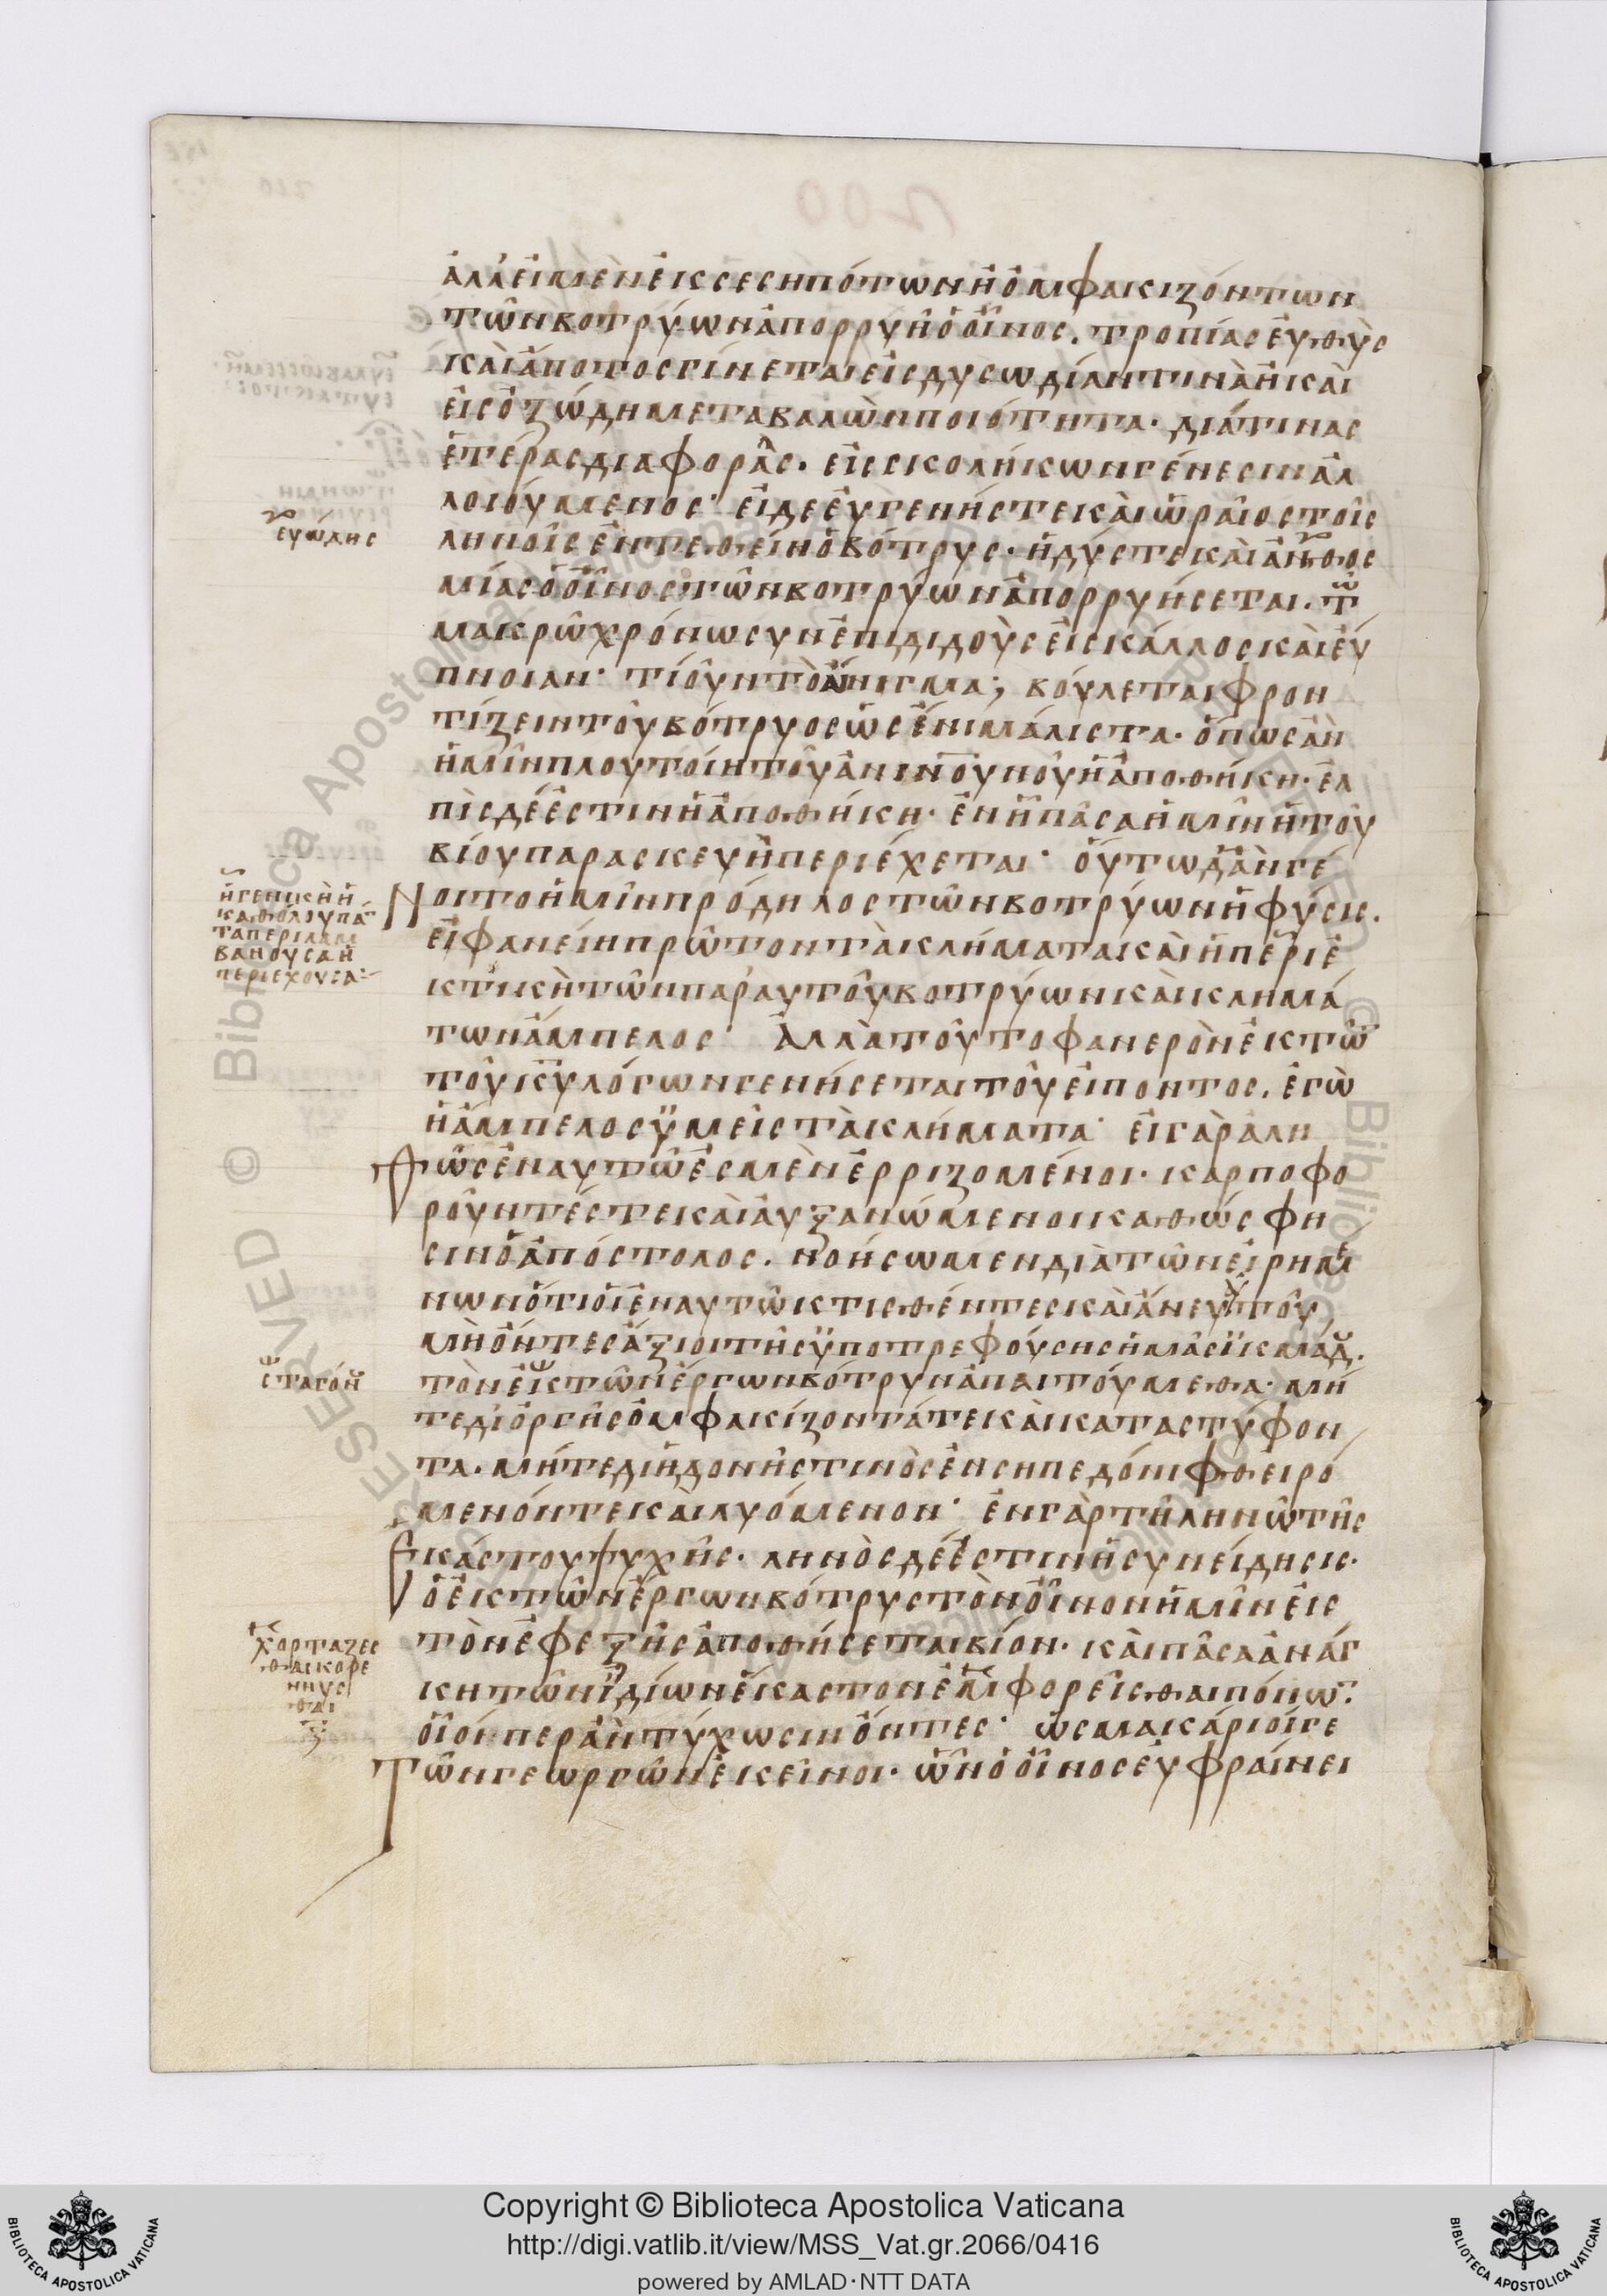 ἀλλ' εἰ μὲν ἐκ σεσηπότων ἢ ὀμφακιζόντων
τῶν βοτρύων ἀπορρυῇ ὁ οἶνος. τροπίας εὐθὺς
καὶ ἄποτος γίνεται εἰς δυσωδίαν τινὰ ἢ καὶ
εἰς ὀζώδη μεταβαλὼν ποιότητα· διά τινας
ἑτέρας διαφοράς. εἰς σκολήκων γένεσιν ἀλ
λοιούμενος· εἰ δὲ εὐγενής τε καὶ ὡραῖος τοῖς
ληνοῖς ἐντεθείη ὁ βότρυς· ἡδύς τε καὶ ἀνθος
μίας ὁ οἶνος τῶν βοτρύων ἀπορρυήσεται. τῶ
μακρῶ χρόνω συνεπιδιδοὺς εἰς κάλλος καὶ εὔ
πνοιαν· τί οὖν τὸ αἴνιγμα; βούλεται φρον
τίζειν τοῦ βότρυος ὡς ἔνι μάλιστα· ὅπως ἂν
ἡμῖν πλουτοίη τοῦ ἀνινου νοῦν ἡ ἀποθήκη· ἐλ
πὶς δέ ἐστιν ἡ ἀποθήκη· ἐν ἧ πᾶσα ἡμῖν ἡ τοῦ
βίου παρασκευὴ περιέχεται· οὕτω δ' ἂν γέ
νοιτο ἡμῖν πρόδηλος τῶν βοτρύων ἡ φύσις.
εἰ φανείη πρῶτον τὰ κλήματα καὶ ἡ περιε
κτικὴ τῶν παρ' αυτοῦ βοτρύων καὶ κλημά
των ἄμπελος· Ἀλλὰ τοῦτο φανερὸν ἐκ τῶν
τοῦ κυ λόγων γενήσεται τοῦ εἰποντος. ἐγὼ
ἡ ἄμπελος ὑμεῖς τὰ κλήματα· εἰ γὰρ ἀλη
θῶς ἐν αυτῶ ἐσμὲν ἐρριζομένοι· καρποφο
ροῦντές τε καὶ αὐξανώμενοι καθώς φη
σιν ὁ ἀπόστολος. νοήσωμεν διὰ τῶν εἰρημέ
νων ὅτι οἱ ἐν αυτῶ κτισθέντες καὶ ἄνευ τοῦ
μὴ ὄντες ἄξιοι τῆς ὑποτρεφούσης ἡμᾶς ϊκμάδ.
τὸν ἐκ τῶν ἔργων βότρυν ἀπαιτούμεθα· μή
τε δι' ὀργῆς ὀμφακίζοντά τε καὶ καταστύφον
τα. μήτε δι' ἡδονῆς τινὸς ἐν σηπεδόνι φθειρό
μενόν τε καὶ λυόμενον· ἐν γὰρ τῆ ληνῶ τῆς
ἑκάστου ψυχῆς. ληνὸς δέ ἐστιν ἡ συνείδησις.
ὁ ἐκ τῶν ἔργων βότρυς τὸν οἶνον ἡμῖν εἰς
τὸν ἐφεξῆς ἀποθήσεται βίον. καὶ πᾶσα ἀνάγ
κη τῶν ἰδίων ἕκαστον ἐμφορεῖσθαι πόνων.
οἷοί περ ἂν τύχωσιν ὄντες· ὡς μακάριοί γε
τῶν γεωργῶν ἐκεῖνοι. ὧν ὁ οἶνος εὐφραίνει
ευώδης
ἡ γενικὴ ἡ
καθόλου πάν
τα περιλαμ
βανουσα ἡ
περιέχουσα:
σταγόν
χορτάζεσ
θαι κορέ
ννυσ
θαι
Copyright © Biblioteca Apostolica Vaticana
http://digi.vatlib.it/view/MSS_Vat.gr.2066/0416
powered by AMLAD·NTT DATA